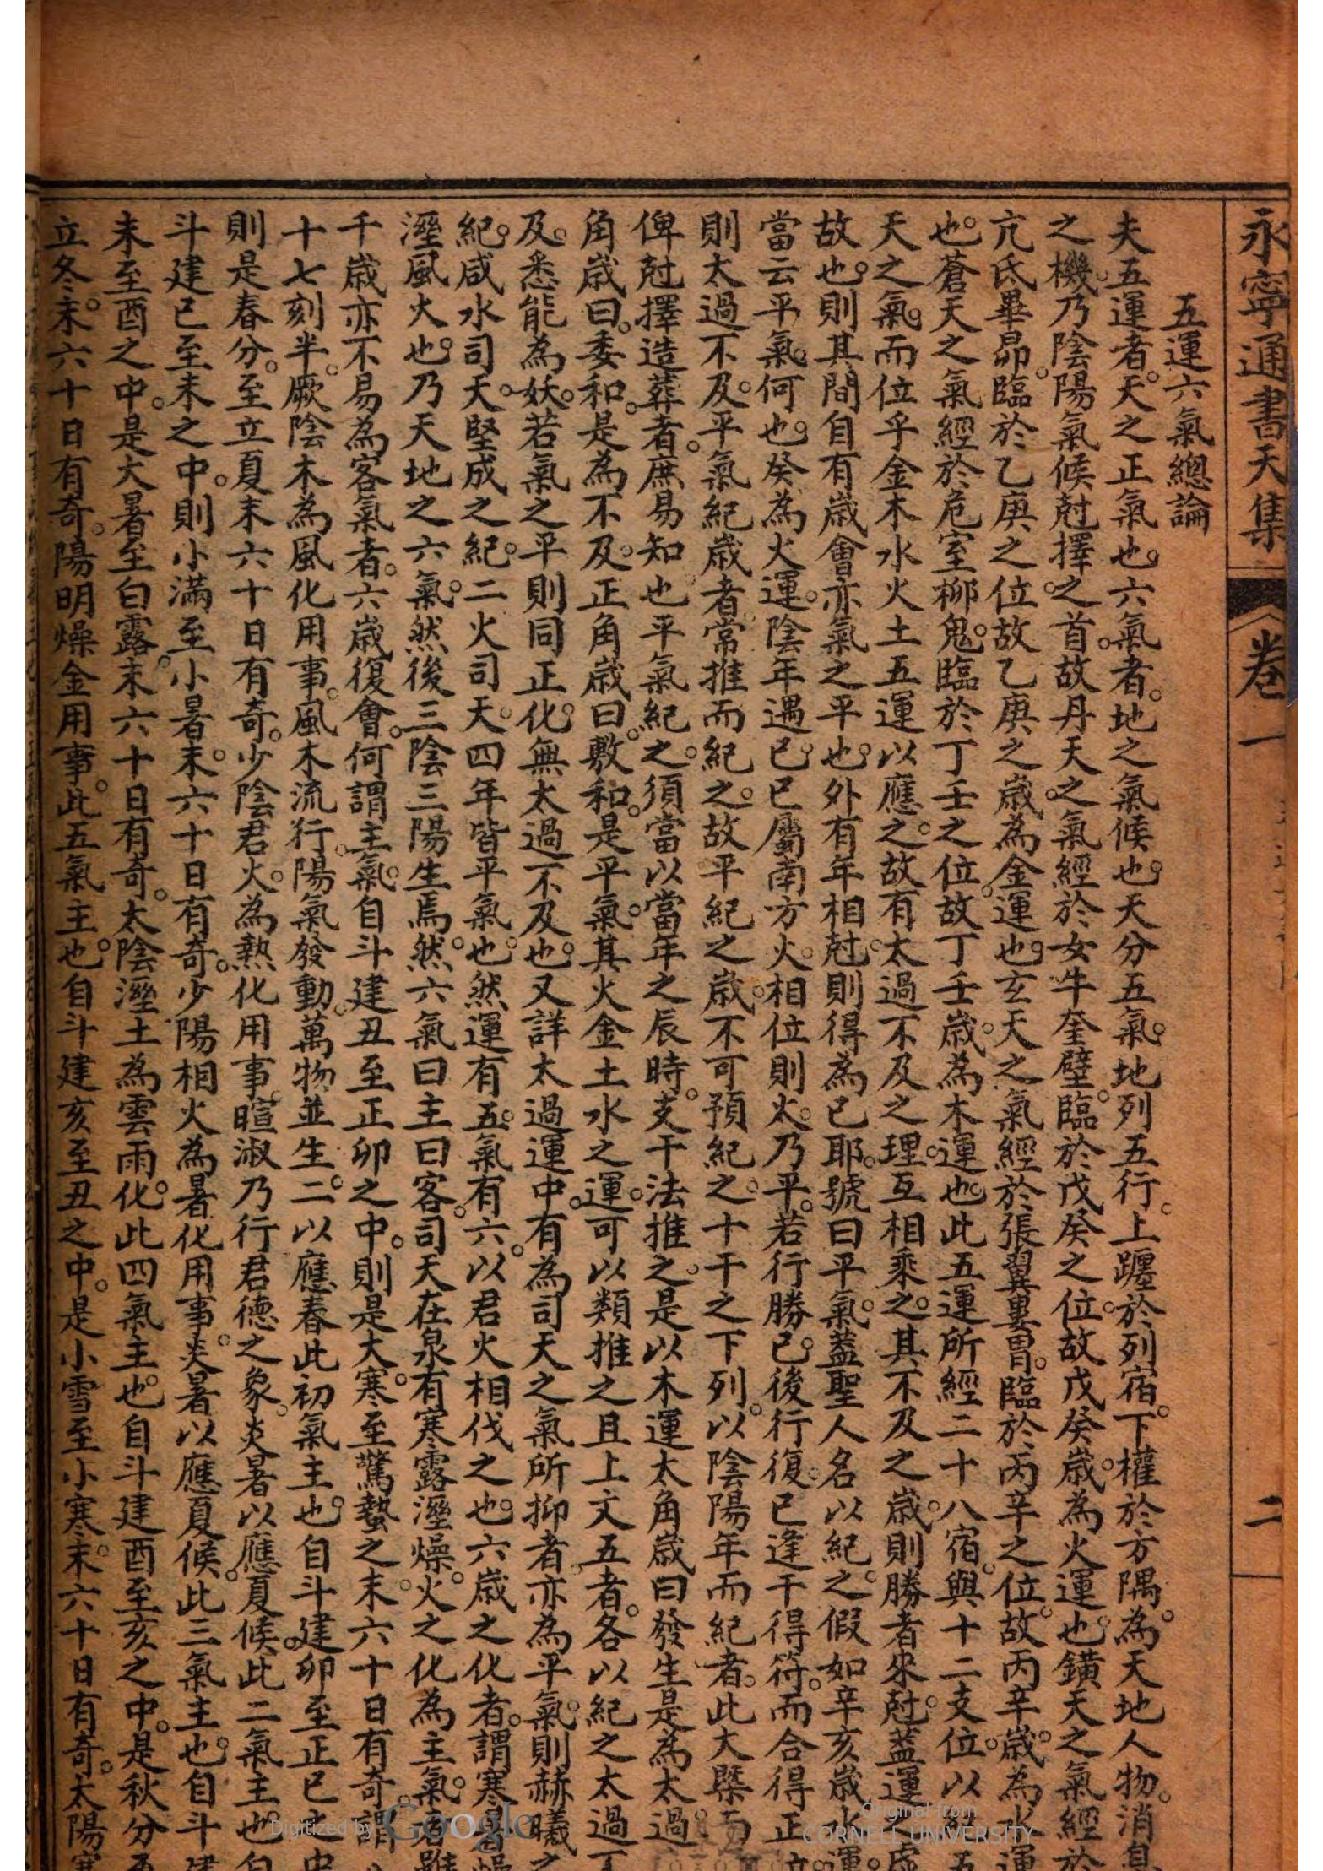 永寧通書天集
卷一
二
五運六氣總論
夫五運者。天之正氣也。六氣者。地之氣候也。天分五氣。地列五行。上躔於列宿。下權於方隅。為天地人物。消息
之機。乃陰陽氣候尅擇之首。故丹天之氣。經於女牛奎壁。臨於戊癸之位。故戊癸歲為火運也。鎮天之氣經於
亢氐畢昴。臨於乙庚之位。故乙庚之歲為金運也。玄天之氣經於張翼婁胃。臨於丙辛之位。故丙辛歲為水運
也。蒼天之氣經於危室柳鬼。臨於丁壬之位。故丁壬歲為木運也。此五運所經二十八宿。與十二支位。以五
天之氣。而位乎金木水火土五運以應之。故有太過不及之理。互相乘之。其不及之歲。則勝者來尅。蓋運
故也。則其間自有歲會。亦氣之平也。外有年相尅則得為已耶。號曰平氣。蓋聖人名以紀之。假如辛亥歲水運
當云平氣。何也。癸為火運。陰年遇巳。巳屬南方火。相位則火乃平。若行勝已。後行復已。逢干得符。而合得正
則太過不及。平氣紀歲者。常推而紀之。故平紀之歲。不可預紀之。十干之下列。以陰陽年而紀者。此大槩而
俾尅擇造葬者。庶易知也。平氣紀之。須當以當年之辰時。支干法推之。是以木運太角歲曰發生。是為太過。
角歲曰。委和。是為不及。正角歲曰。敷和。是平氣。其火金土水之運。可以類推之。且上文五者。各以紀之太過
及。悉能為妖。若氣之平則同正化。無太過不及也。又詳太過運中。有為司天之氣所抑者。亦為平氣。則赫曦之
紀。咸水司天。堅成之紀。二火司天。四年皆平氣也。然運有五。氣有六。以君火相伐之也。六歲之化者。謂寒暑燥
溼風火也。乃天地之六氣。然後三陰三陽生焉。然六氣曰主曰客。司天在泉有寒露溼燥。火之化為主氣。
千歲亦不易為客氣者。六歲復會。何謂主氣。自斗建丑至正卯之中。則是大寒。至驚蟄之末。六十日有奇。謂
十七刻半。厥陰木為風化用事。風木流行。陽氣發動。萬物並生。二以應春。此初氣主也。自斗建卯至正巳之中
則是春分。至立夏末六十日有奇。少陰君火。為熱化用事。暄淑乃行君德之象。炎暑以應夏候。此二氣主也。自
斗建巳至未之中。則小滿至小暑末。六十日有奇。少陽相火為暑化用事。炎暑以應夏候。此三氣主也。自斗建
未至酉之中。是大暑至白露末。六十日有奇。太陰溼土為雲雨化。此四氣主也。自斗建酉至亥之中。是秋分
立冬。末六十日有奇。陽明燥金用事。此五氣主也。自斗建亥至丑之中。是小雪至小寒末。六十日有奇。太陽寒
Digitized by Google
Original from
CORNELL UNIVERSITY